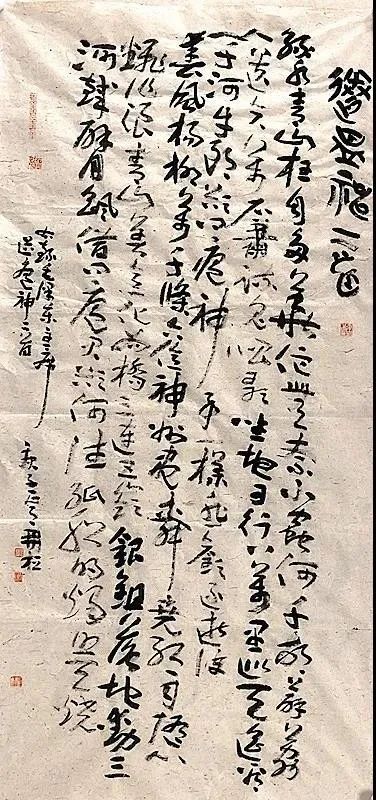 送瘟神二首
綠水青山枉自多華佗無奈小蟲何千村薜荔
人遺矢萬戶蕭疏鬼唱歌坐地日行八萬里巡天遙看
一千河牛郎欲問瘟神事一樣悲歡逐逝波
春風楊柳萬千條六億神州盡舜堯紅雨隨心
翻作浪青山著意化為橋天連五嶺銀鋤落地動三
河鐵臂搖借問瘟君欲何往紙船明燭照天燒
右錄毛澤東主席
送瘟神二首